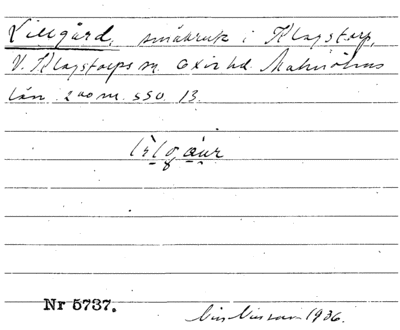 Lillgård, småbruk i Klagstorp,
V. Klagstorps sn. Oxie hd. Malmöhus
län. 200 m. SSO 13.
Nr 5737.
1936.